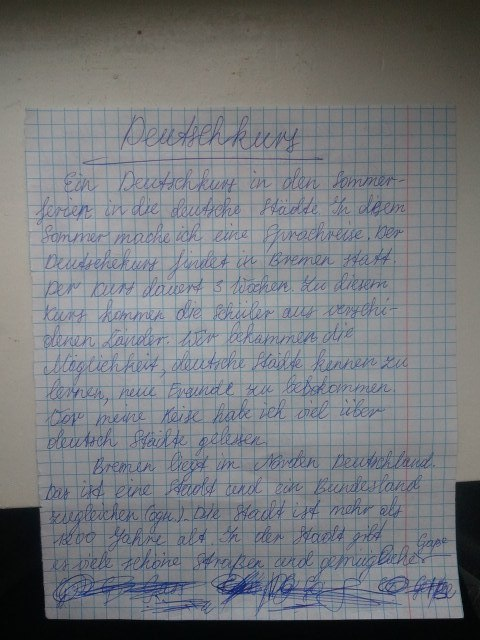 Deutschkurs
Ein Deutschkurs in den Sommer-
ferien in die deutsche Städte. In desem
Sommer mache ich eine Sprachreise. Der
Deutschekurs findet in Bremen statt.
Der Kurs dauert 3 Wochen. Zu diesem
Kurs kommen die Schüler aus verschi-
denen Länder. Wir bekammen die
Möglichkeit, deutsche Städte kennen zu
lernen, neue Freunde zu bekommen.
Vor meine Reise habe ich viel über
deutsch Städte gelessen.
Bremen liegt im Norden Deutschland.
Das ist eine Stadt und ein Bundesland
zugleichen (ogu.). Die Stadt ist mehr als
1200 Jahre alt. In der Stadt gibt
es viele schöne Straßen und gemügliche